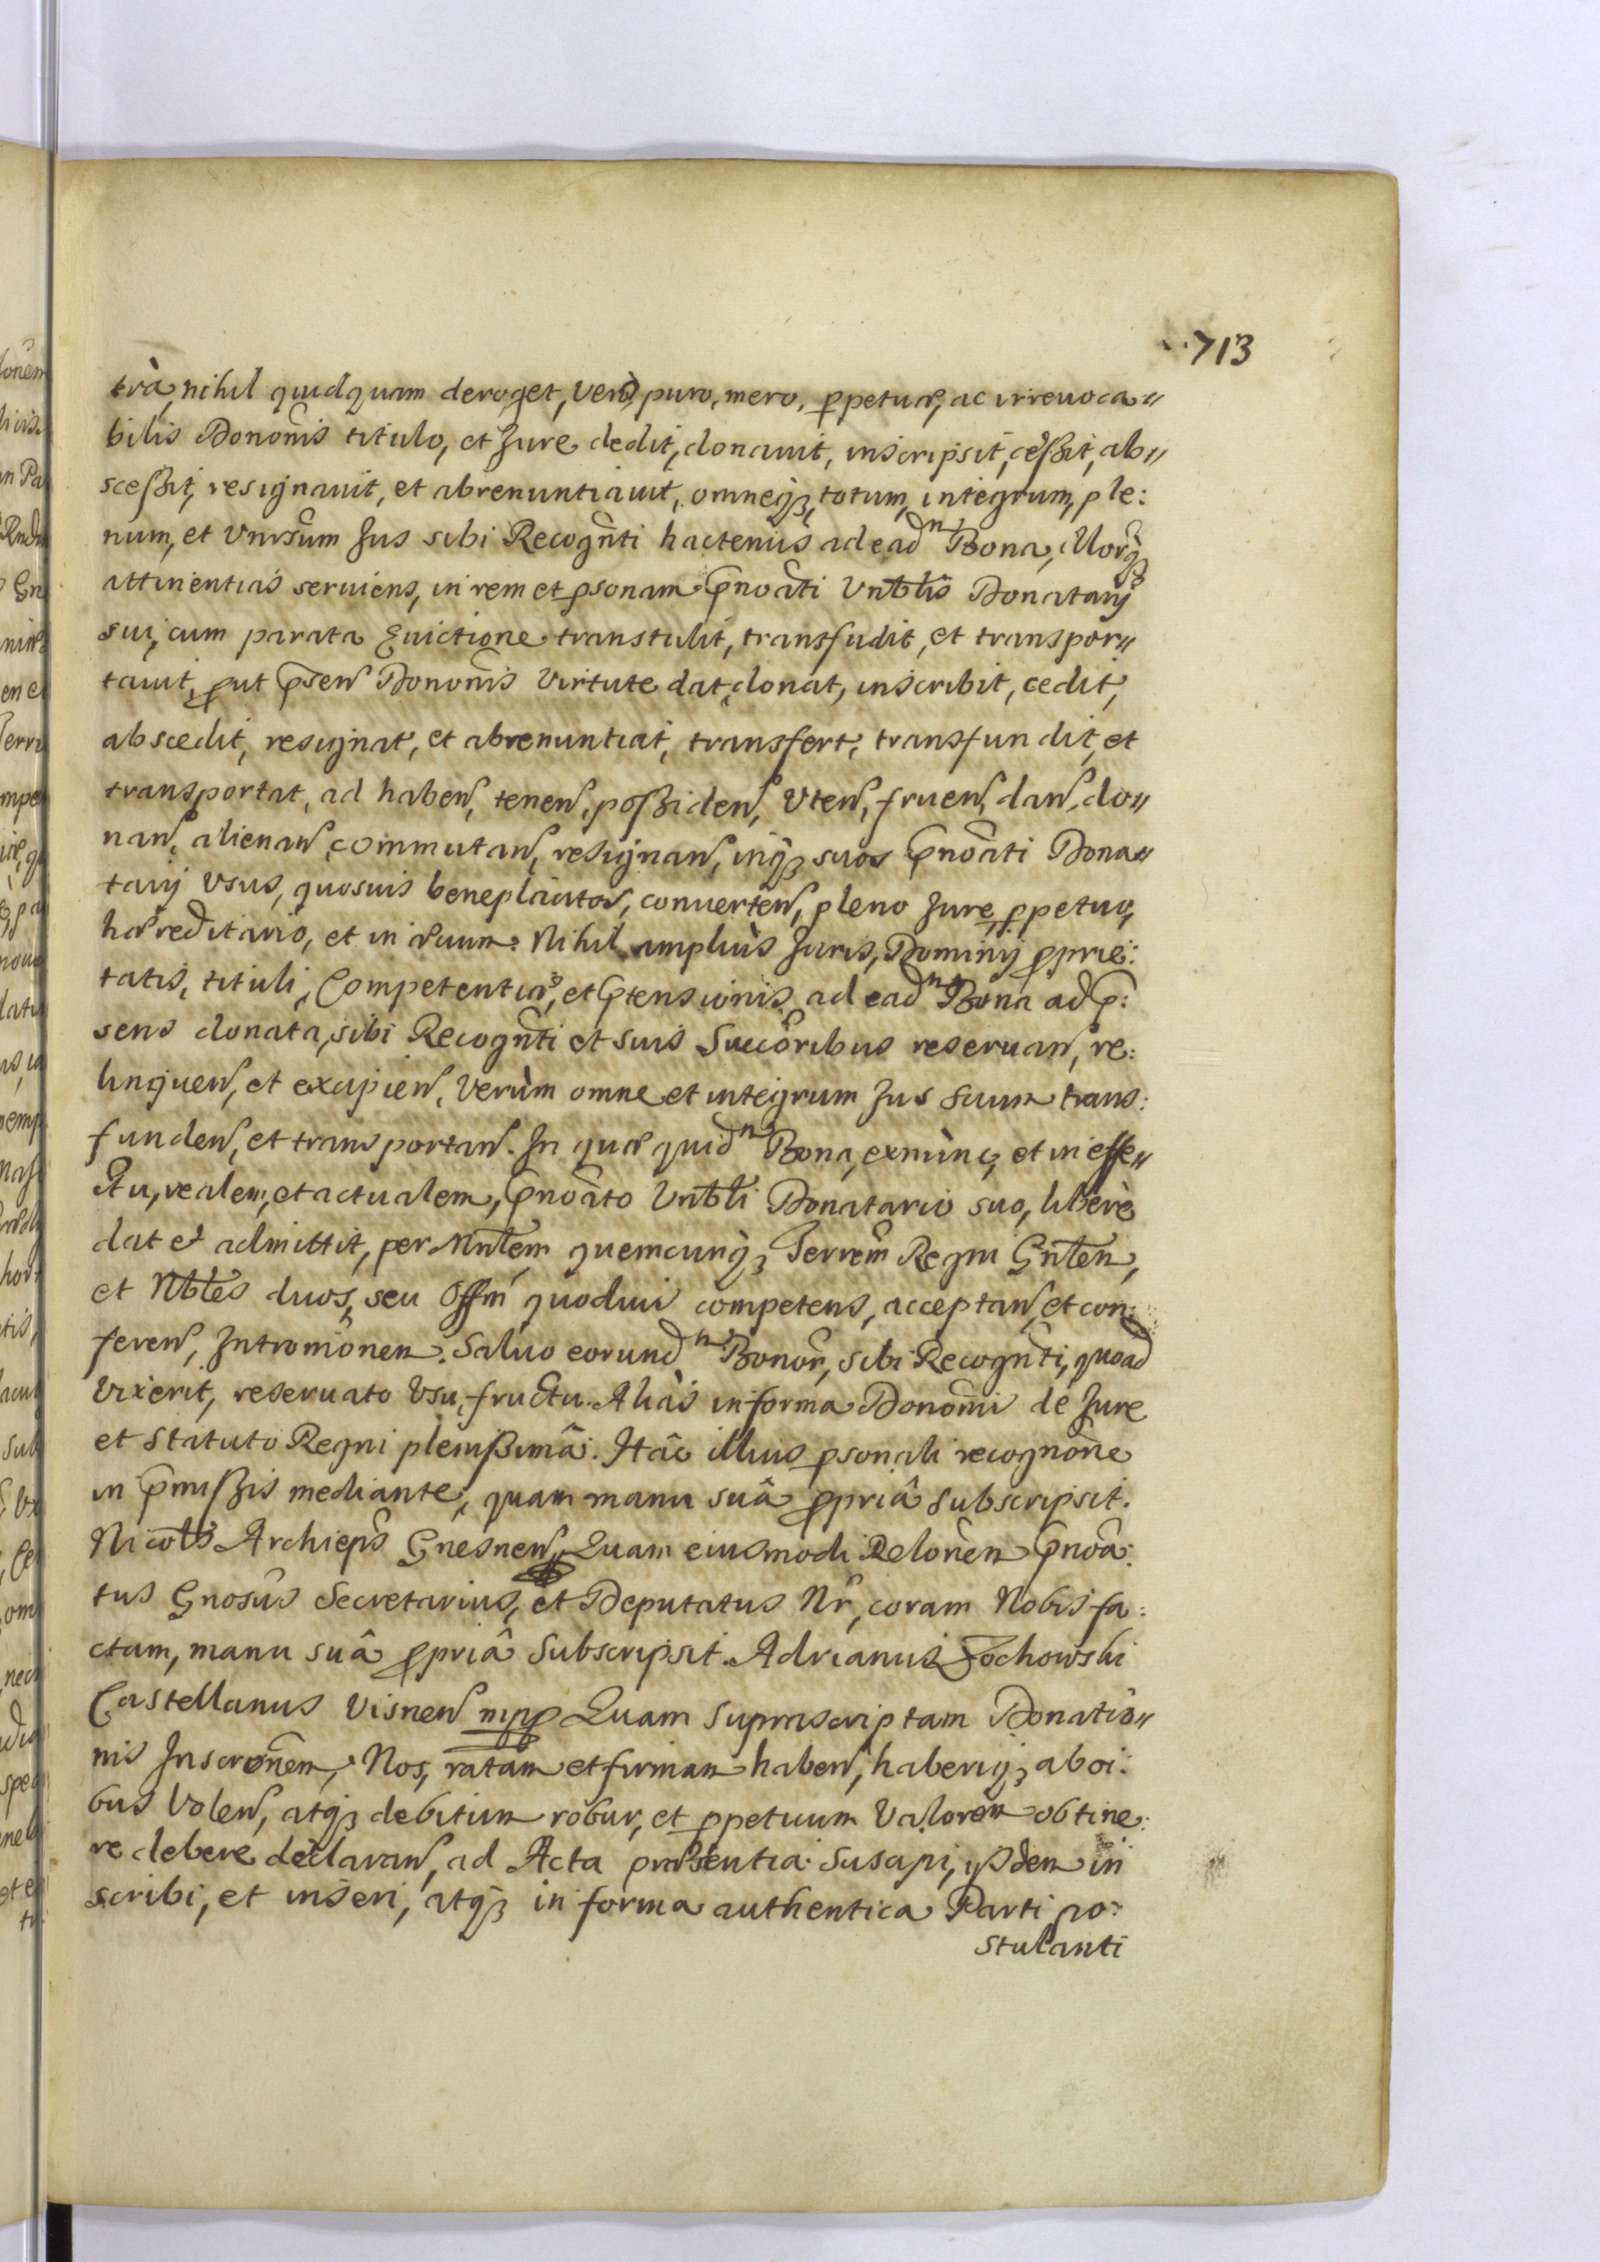 713
trà, nihil quidquam deroget, verò puro, mero, ꝑpetuæ, ac irreuoca〃
bilis Dononĩs titulo, et Jure dedit, donauit, inscripsit, ceſsit, ab〃
sceſsit, resignauit, et abrenuntiauit, omneqꝫ, totum, integrum, ple:
num, et Vnirsũm Jus sibi Recogñti hactenus ad eadⁿ Bona, illorq̃ꝫ
attinentias seruiens, in rem et ꝑsonam p̃noãti Vnb̃lis Donatarij
sui, cum parata Euictione transtulit, transfudit, et transpor〃
tauit, ꝓut p̃sen̄ Dononĩs Virtute dat, donat, inscribit, cedit,
abscedit, resignat, et abrenuntiat, transfert, transfundit, et
transportat, ad haben̄, tenen̄, poſsiden̄, Vten̄, fruen̄, dan̄, do〃
nan̄, alienan̄, commutan̄, resignan̄, inqꝫ suos p̃noãti Dona〃
tarij Vsus, quosuis beneplãcitos, conuerten̄, pleno Jure, ꝑpetuo,
hæreditario, et in æuum. Nihil ampliùs Juris, Dominij ꝓprie:
tatis, tituli, Competentiæ, et p̃tensionis ad eadⁿ Bona ad p̃:
sens donata, sibi Recogñti et suis Succõribus reseruan̄, re:
linquen̄, et excipien̄, Verùm omne et integrum Jus suum trans:
funden̄, et transportan̄. In quæ quidⁿ Bona, exnùnc, et in effe〃
ctu, realem, et actualem, p̃noãto Vnb̃li Donatario suo, liberè
dat et admittit, per Mñtem quemcunqꝫ Terrẽm Regni Gñlen,
et Nb̃les duos, seu Offm̃ quoduis competens, acceptan̄, et con:
feren̄, Intromiõnem. Saluo eorundⁿ Bonor̃, sibi Recogñti, quoad
Vixerit, reseruato Vsu,fructu. Aliàs in forma Donõni de Jure
et Statuto Regni pleniſsimâ. Hâc illius ꝑsonali recognõne
in p̃miſsis mediante, quam manu suâ ꝓpriâ subscripsit.
Nicol̃s Archiep̃s Gnesnen̄. Quam eiusmodi Relonẽn p̃noã:
tus Gnosũs Secretarius, et Deputatus Nr̃, coram Nobis fa:
ctam, manu suâ ꝓpriâ subscripsit. Adrianus Zochowski
Castellanus Visnen̄ mpp Quam suprascriptam Donatio〃
nis Inscronẽm, Nos, ratam et firmam haben̄, haberiqꝫ ab oĩ:
bus Volen̄, atqꝫ debitum robur, et ꝑpetuum Valorem obtine:
re debere declaran̄, ad Acta præsentia suscipi, ijsdem in
scribi, et inseri, atqꝫ in forma authentica Parti po:
stulanti